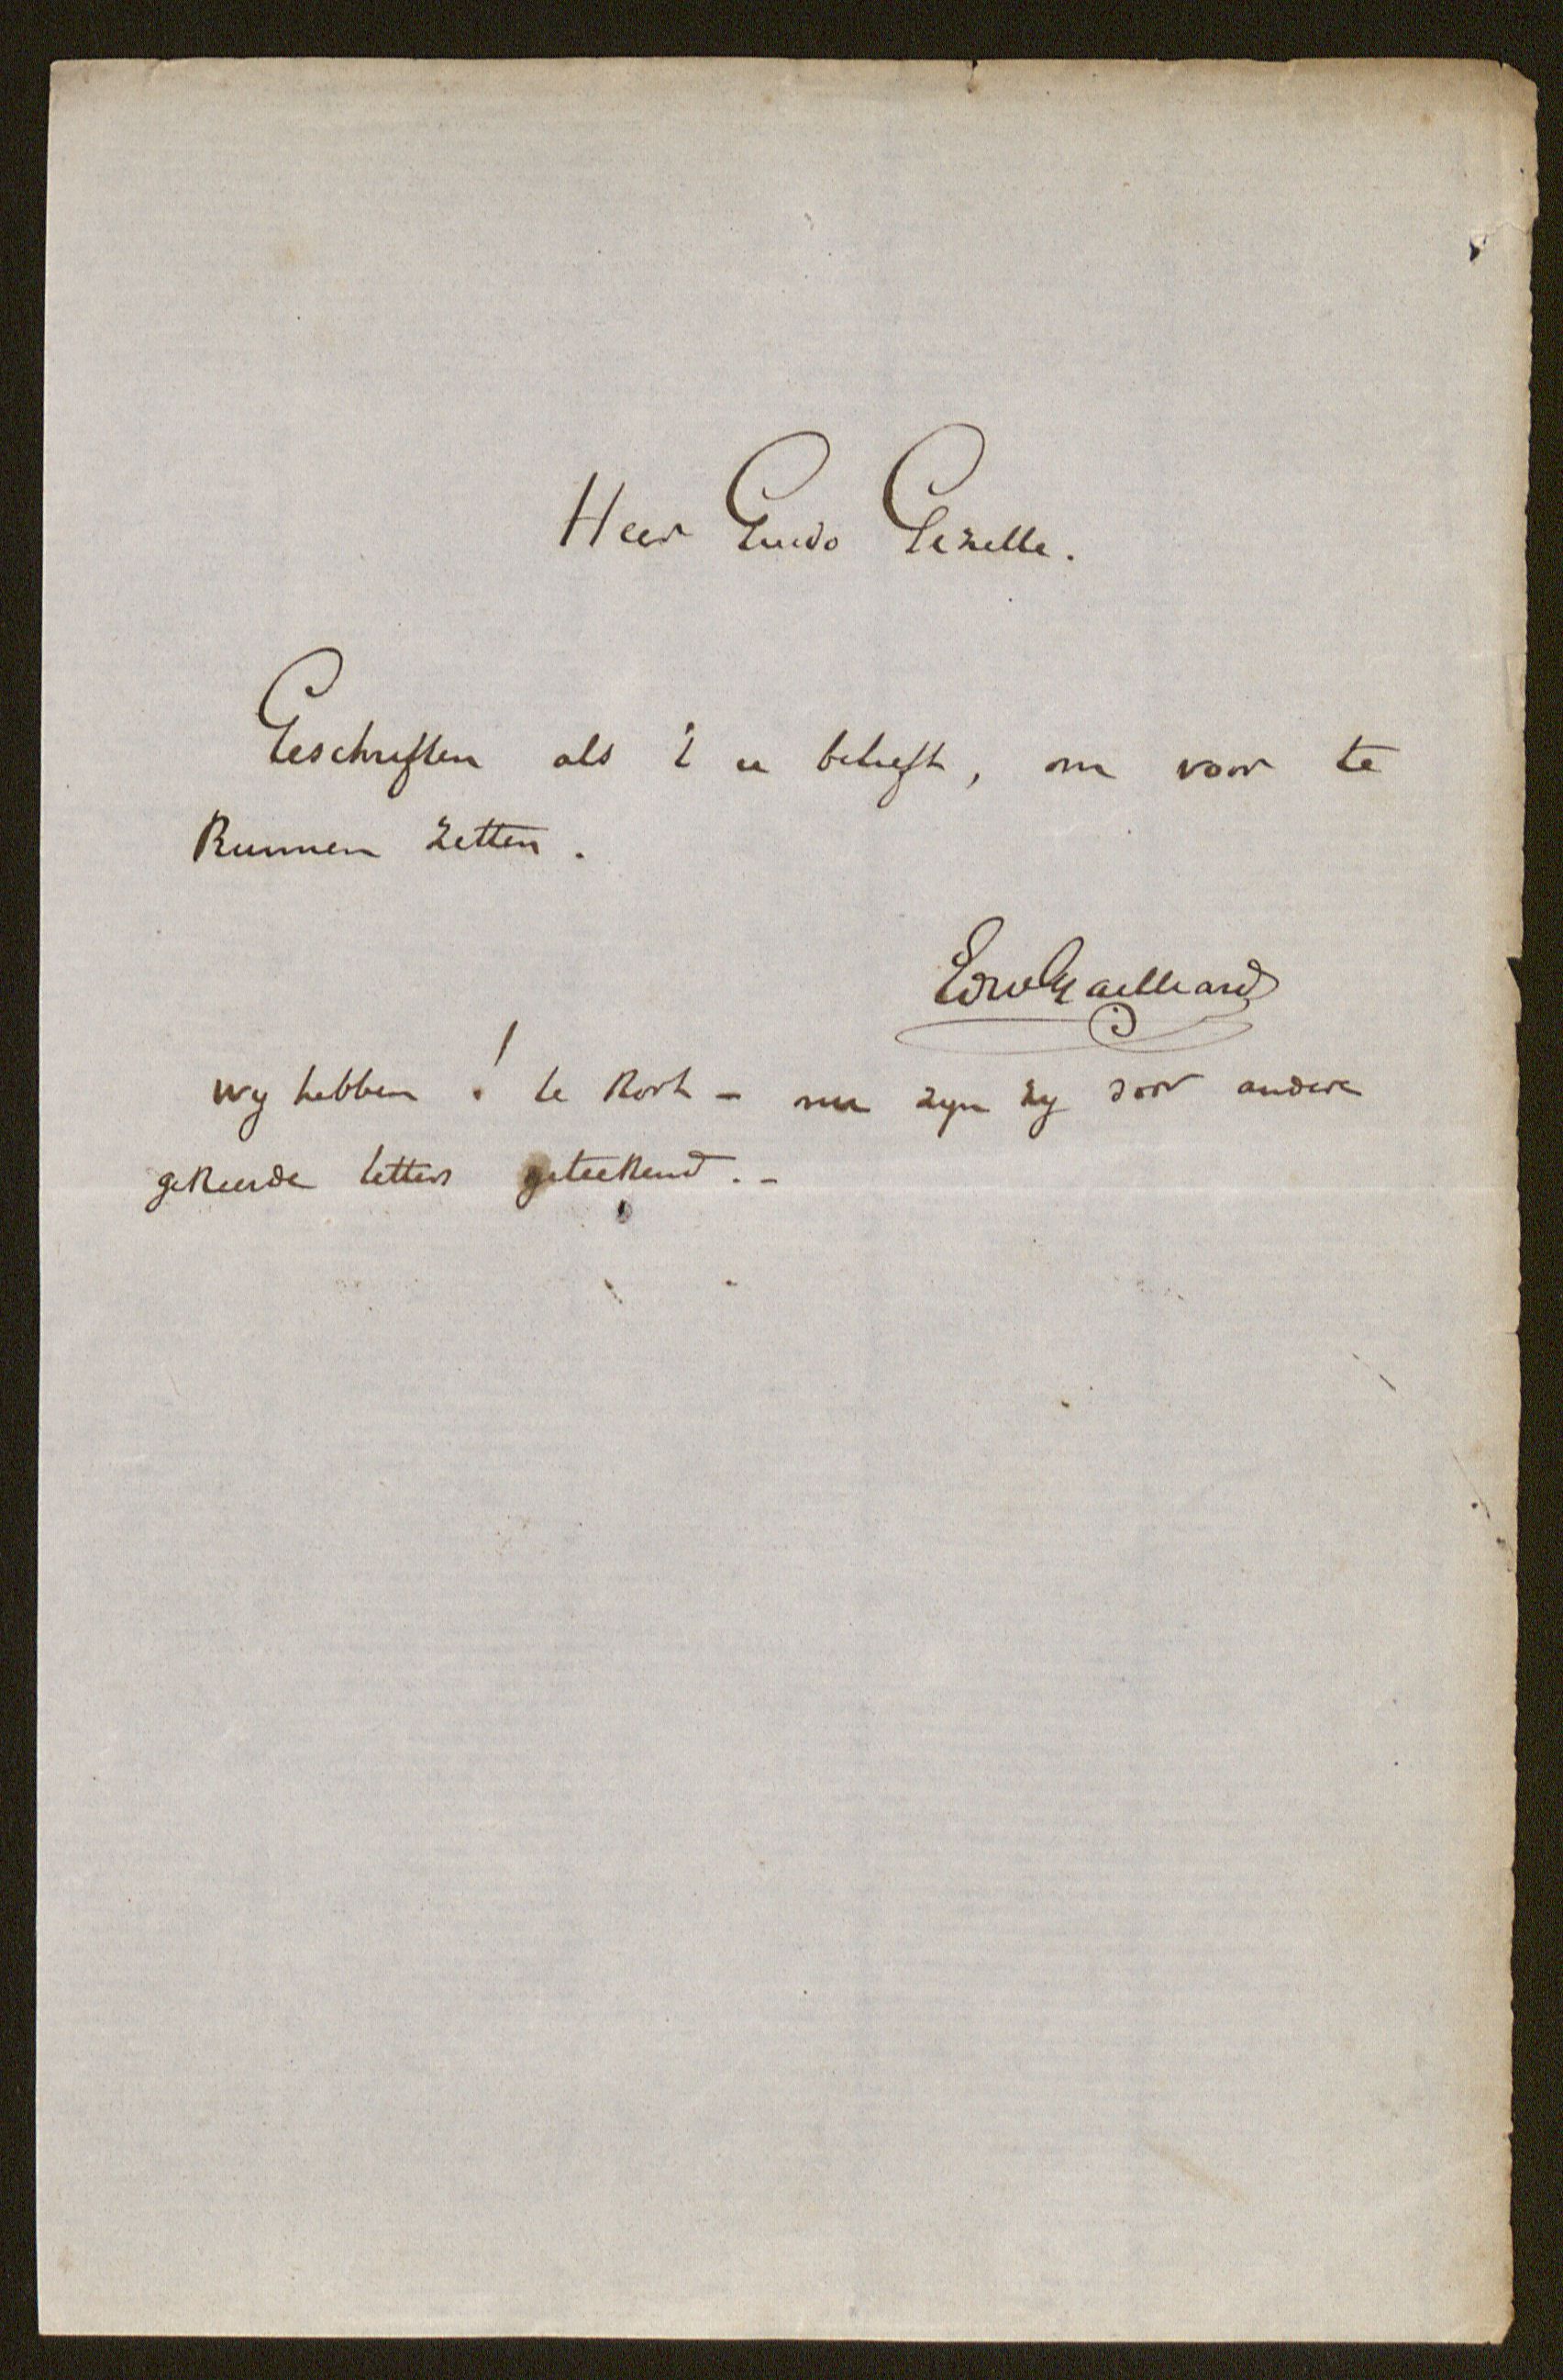 Heer Guido Gezelle.
Geschriften als 't u belieft, om voor te
kunnen zetten.
Edw Gailliard
wy hebben ! te kort – nu zyn zy door andere
gekeerde letters geteekend. –